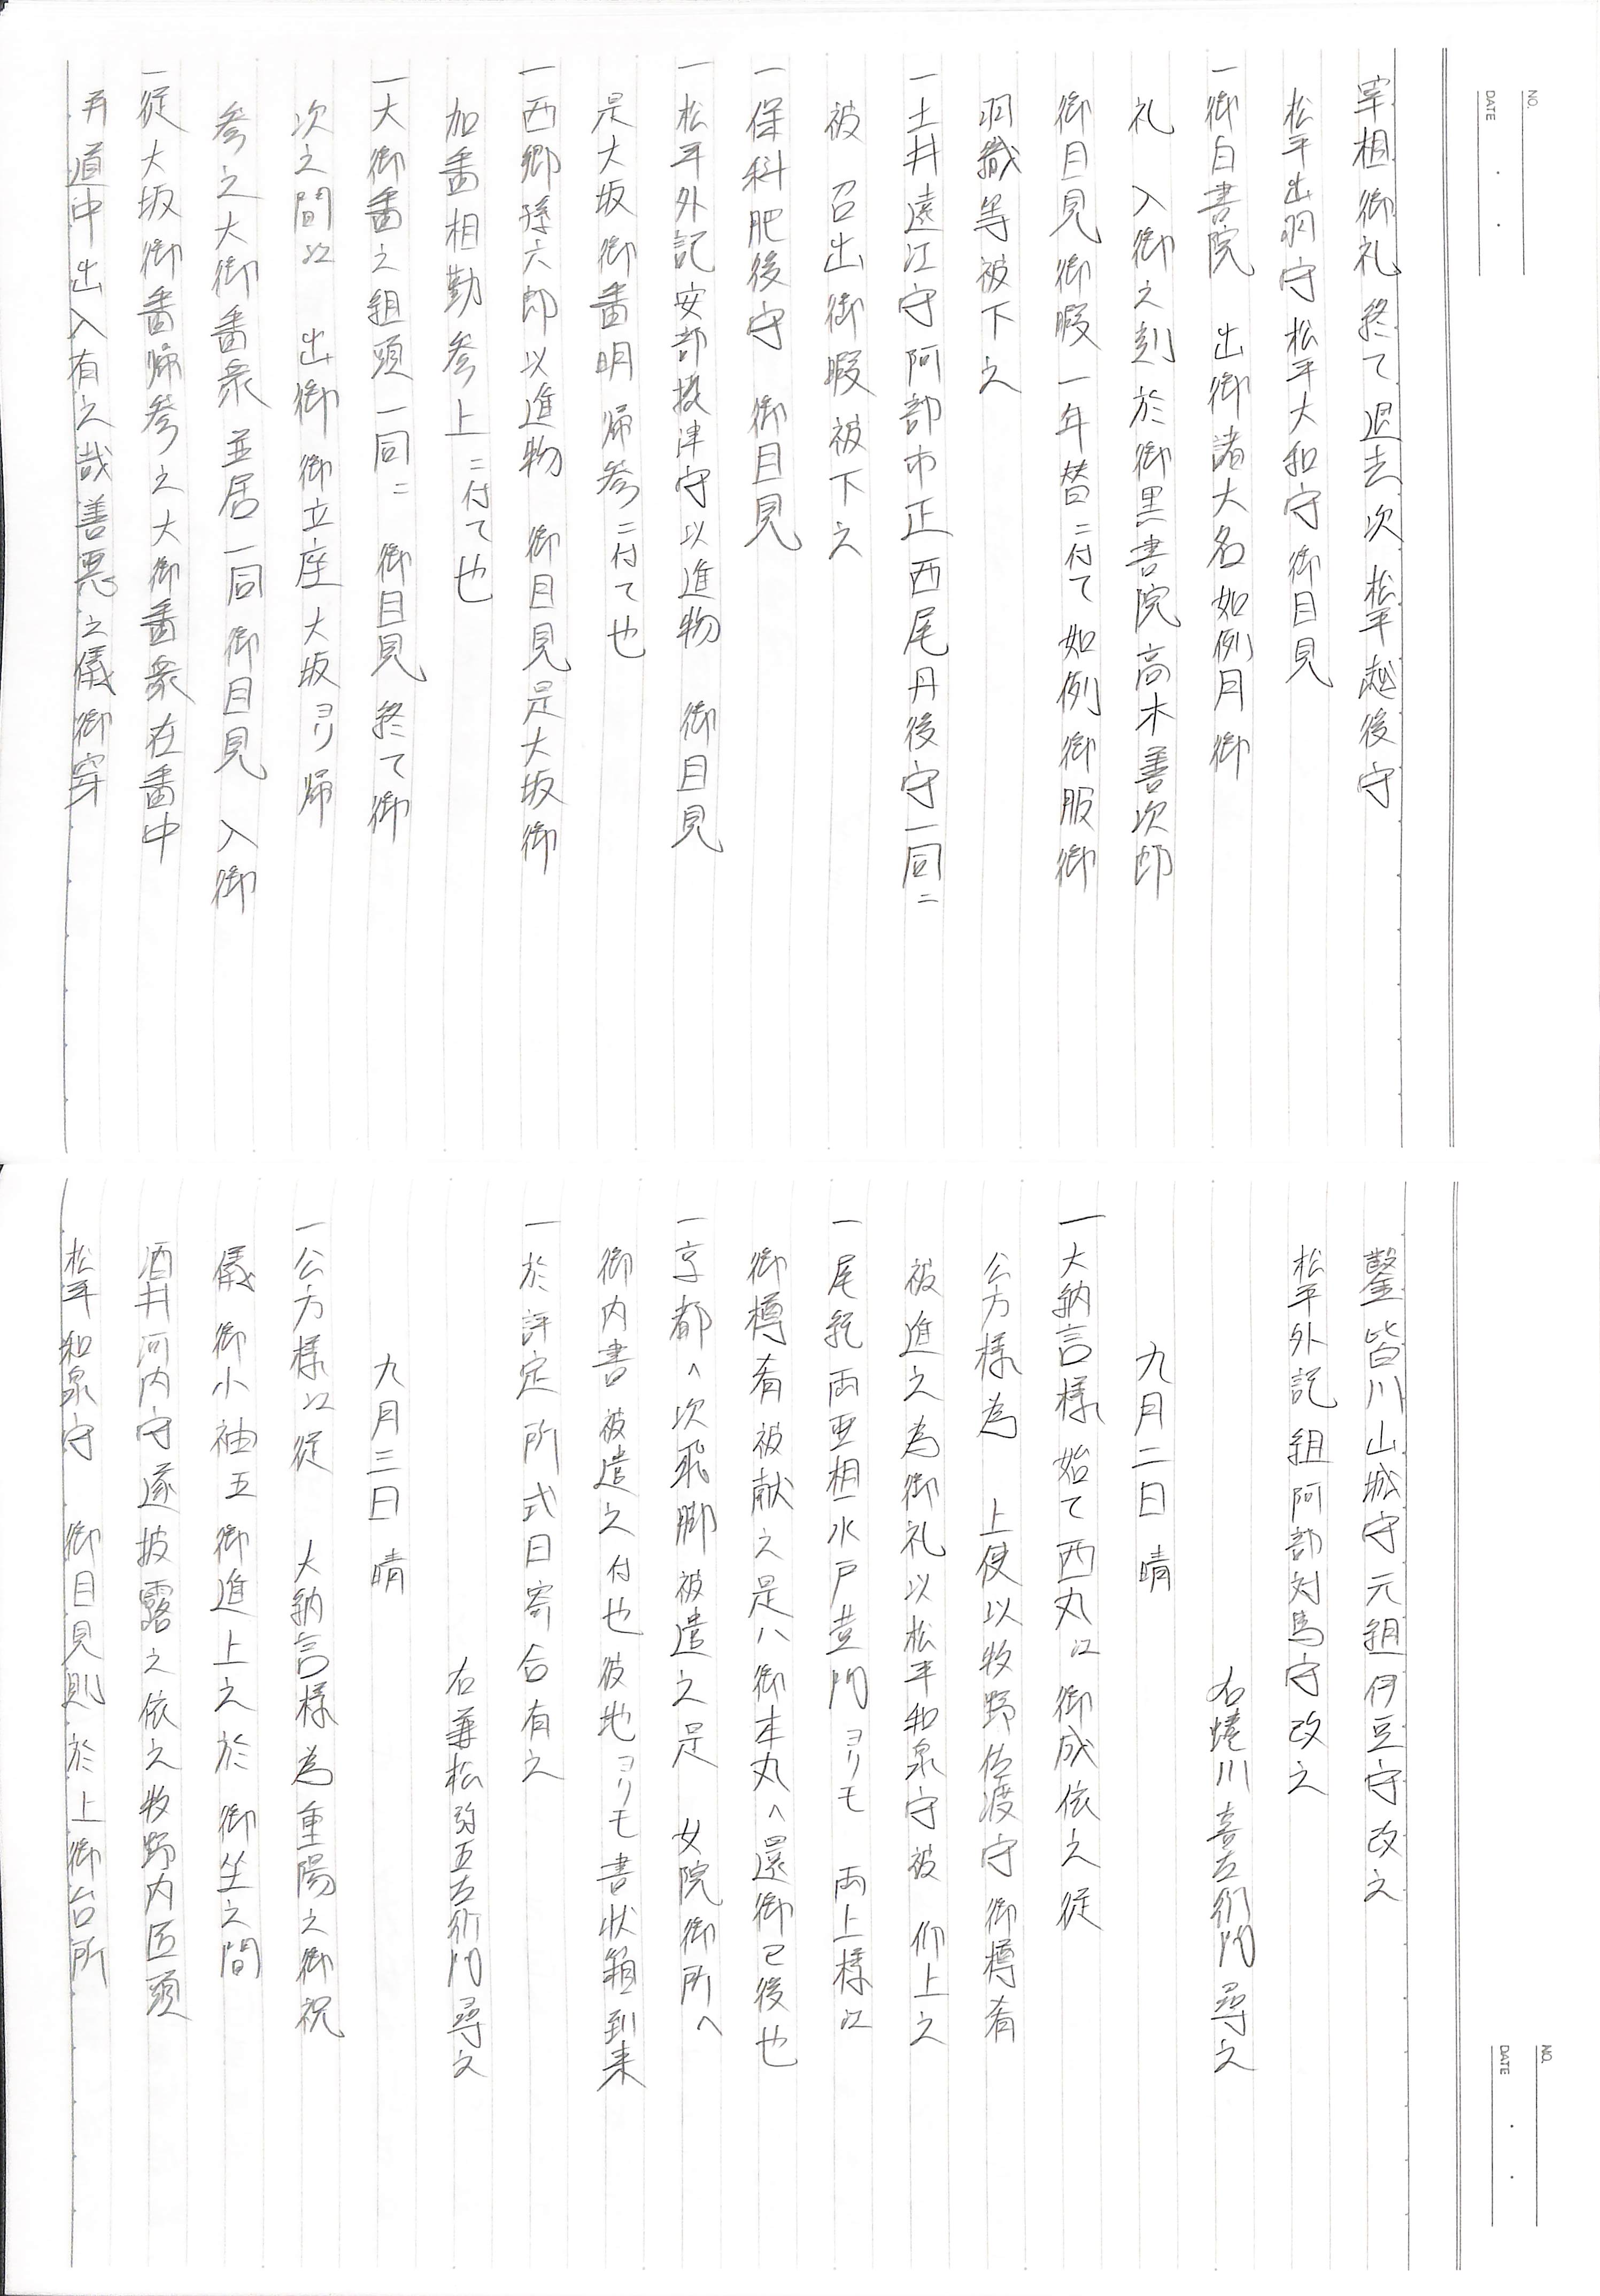 NO.
DATE
宰相御礼終て退去次松平越後守
松平出羽守松平大和守御目見
一御白書院 出御諸大名如例月御
礼 入御之刻於御黒書院高木善次郎
御目見御暇一年替ニ付て如例御服御
羽織等被下之
一土井遠江守阿部市正西尾丹後守一同ニ
被 召出御暇被下之
一保科肥後守 御目見
一松平外記安部摂津守以進物 御目見
是大坂御番明帰参ニ付て也
一西郷孫六郎以進物 御目見是大坂御
加番相勤参上ニ付て也
一大御番之組頭一同ニ 御目見終て御
次之間江 出御御立座大坂ヨリ帰
参之大御番衆並居一同御目見 入御
一従大坂御番帰参之大御番衆在番中
再道中出入有之哉善悪之儀御穿
NO.
DATE
鑿皆川山城守元組伊豆守改之
松平外記組阿部対馬守改之
右蜷川喜左衛門尋之
九月二日 晴
一大納言様始て西丸江御成依之従
公方様為 上使以牧野佐渡守御樽肴
被進之為御礼以松平和泉守被 仰上之
一尾紀両亜相水戸黄門ヨリモ 両上様江
御樽肴被献之是ハ御本丸へ還御已後也
一京都へ次飛脚被遣之是 女院御所へ
御内書被遣之付也彼地ヨリモ書状箱到来
一於評定所式日寄合有之
右兼松弥五左衛門尋之
九月三日 晴
一公方様江従 大納言様為重陽之御祝
儀御小袖五御進上之於 御坐之間
酒井河内守遂披露之依之牧野内匠頭
松平和泉守 御目見則於上御台所